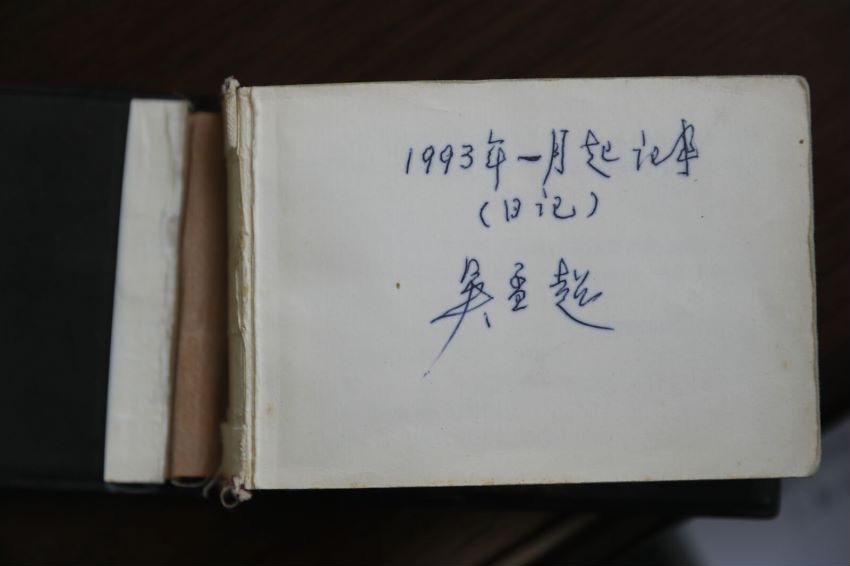 1993年一月起记事
（日记）
吴孟超